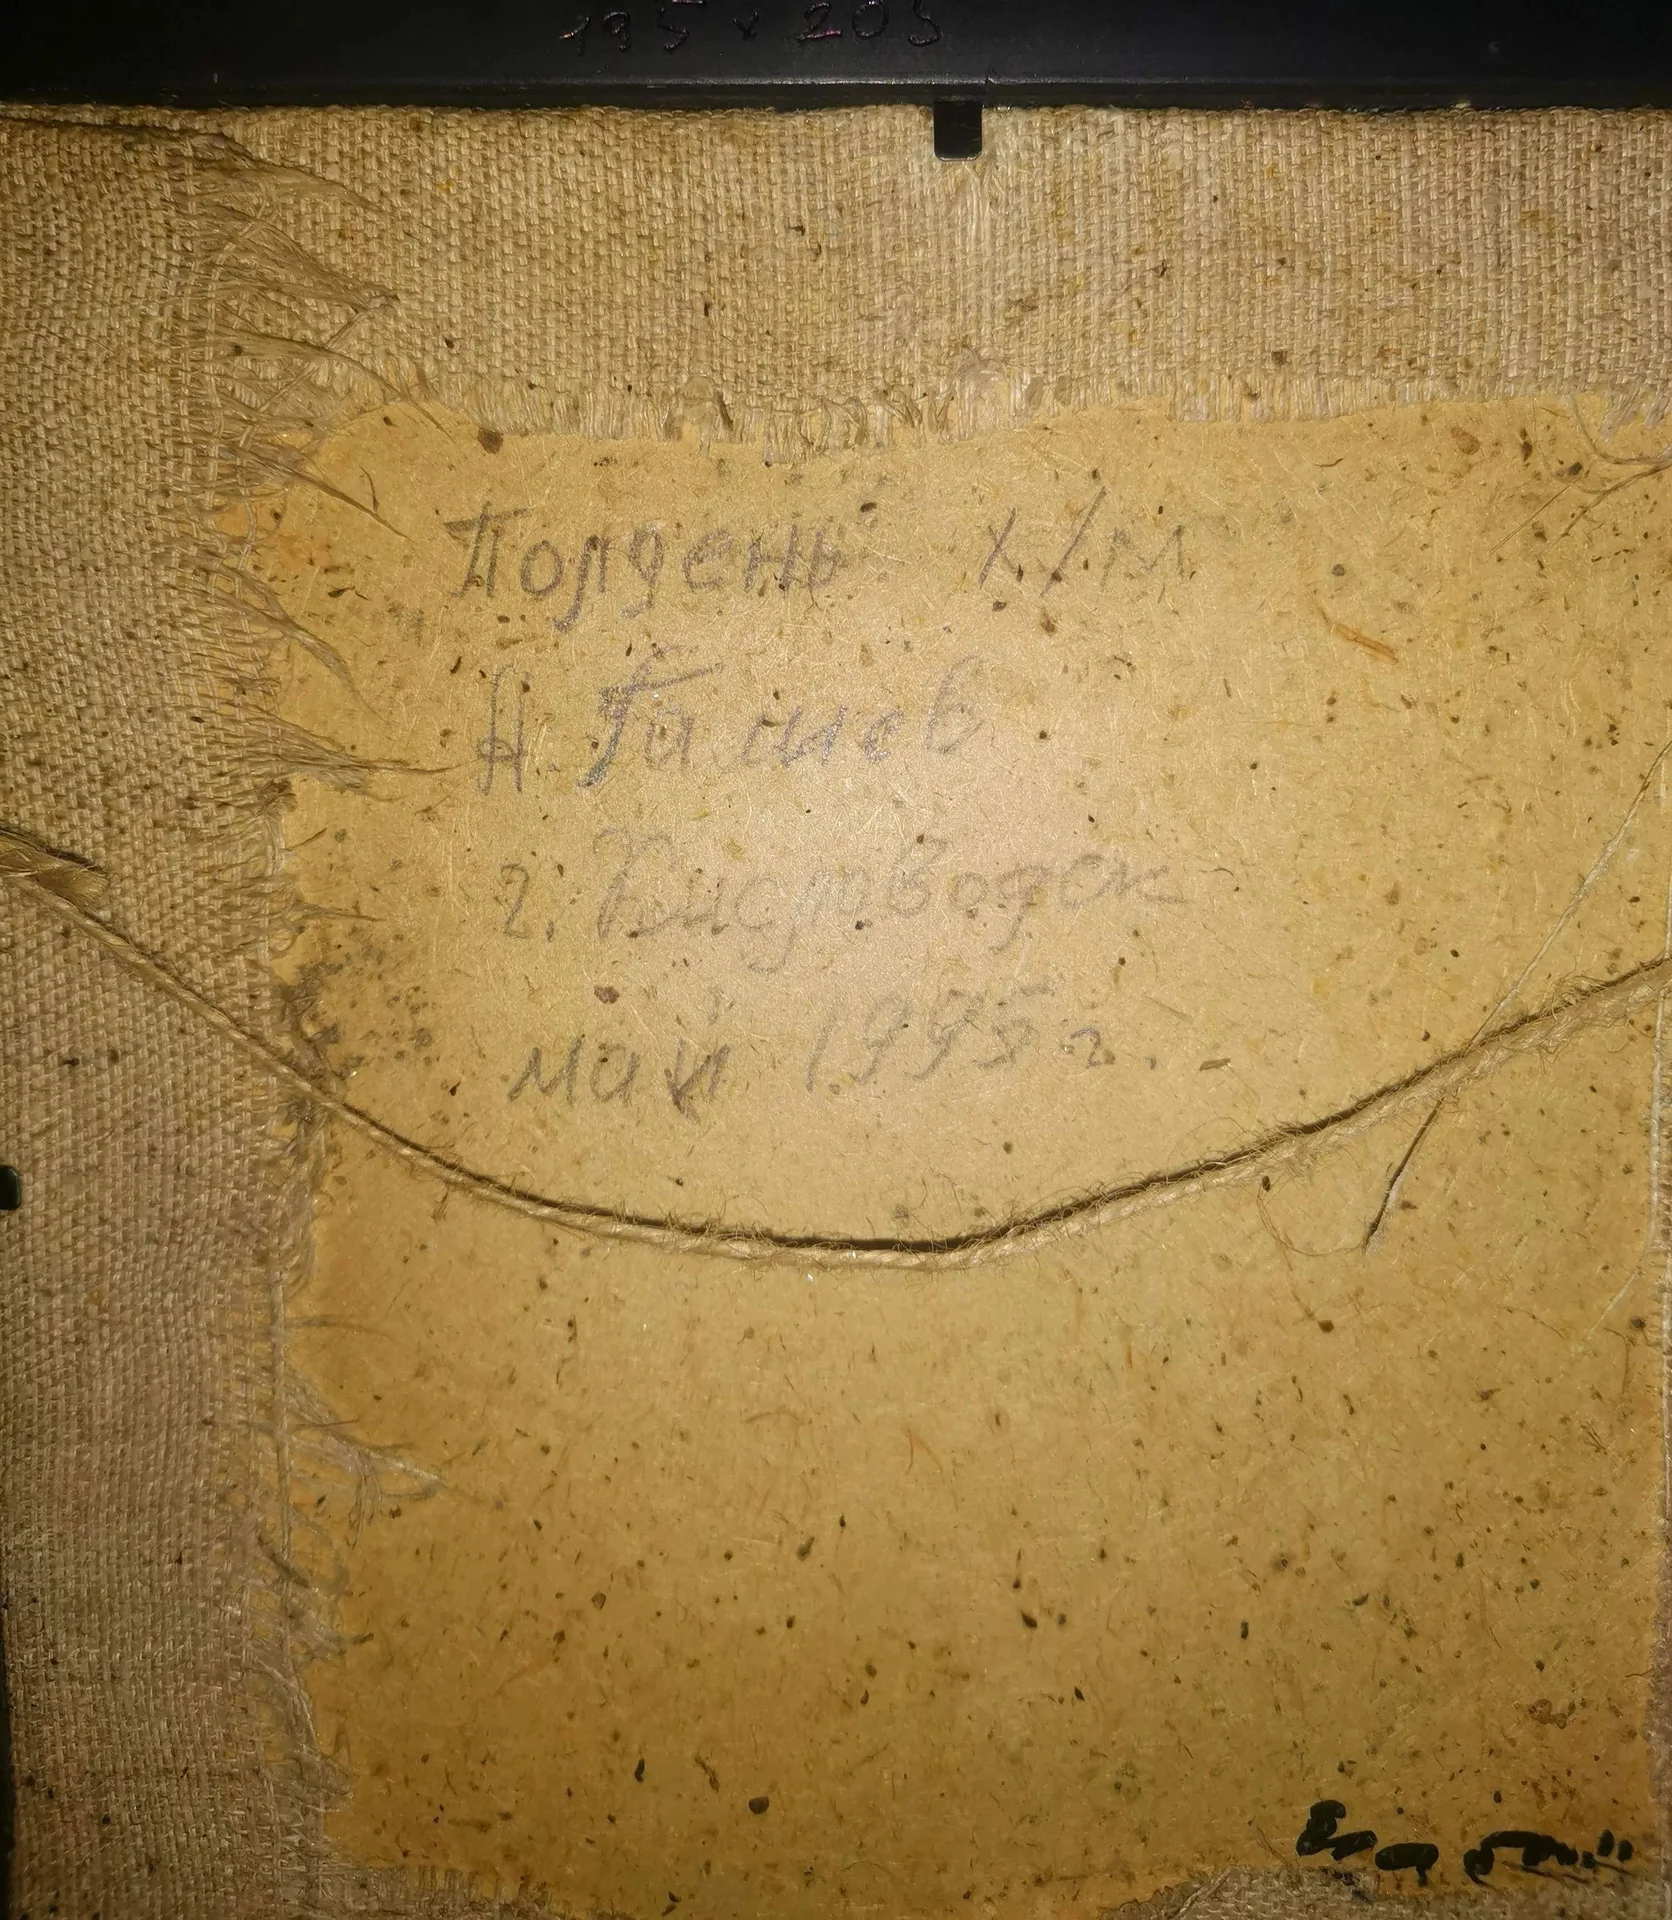 195 x 205
Полдень х/м
Н.
г. Кисловодск
май 1995 г.